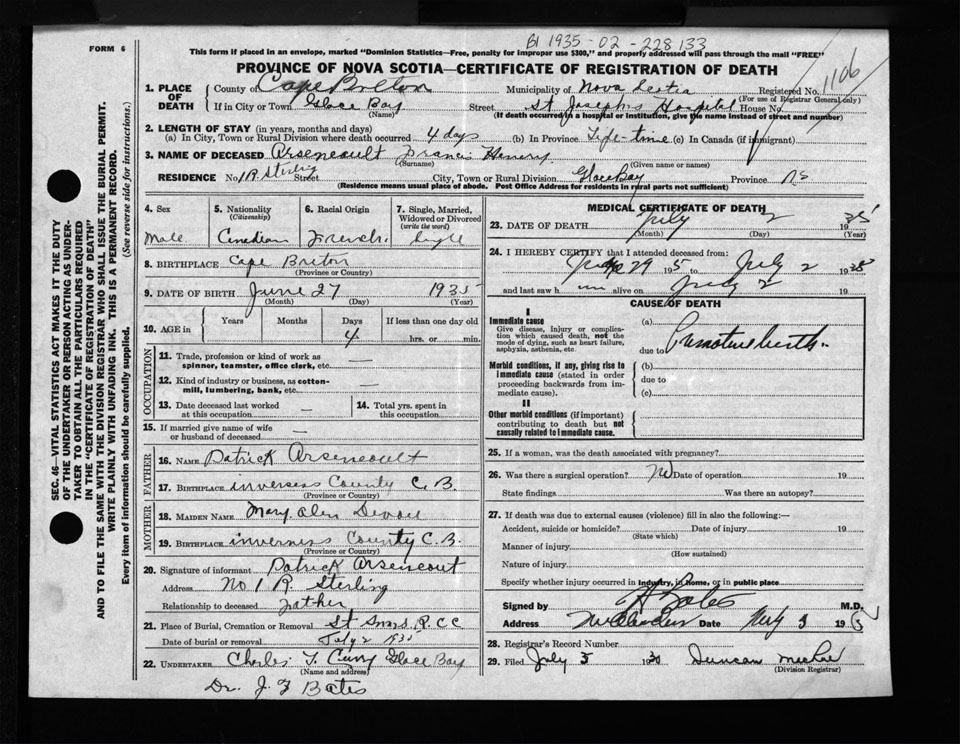 FORM 6
B1 1935-02-228133
1106
This form if placed in an envelope, marked "Dominion Statistics—Free, penalty for improper use $300," and properly addressed will pass through the mail "FREE"
PROVINCE OF NOVA SCOTIA—CERTIFICATE OF REGISTRATION OF DEATH
1. PLACE OF DEATH
County of Cape Breton Municipality of Nova Scotia Registered No.
(For use of Registrar General only)
If in City or Town Glace Bay Street St Josephs Hospital House No.
(Name) (If death occurred in a hospital or institution, give the name instead of street and number)
2. LENGTH OF STAY (in years, months and days)
(a) In City, Town or Rural Division where death occurred 4 days (b) In Province Life-time (c) In Canada (if immigrant)
3. NAME OF DECEASED Arseneault Francis Henery
(Surname) (Given name or names)
RESIDENCE No 1 R. Sterling Street City, Town or Rural Division Glace Bay Province NS
(Residence means usual place of abode. Post Office Address for residents in rural parts not sufficient)
4. Sex
Male
5. Nationality
(Citizenship)
Canadian
6. Racial Origin
French
7. Single, Married, Widowed or Divorced
(write the word)
Single
8. BIRTHPLACE Cape Breton
(Province or Country)
9. DATE OF BIRTH June 27 1935
(Month) (Day) (Year)
10. AGE in Years Months Days If less than one day old
4 hrs. or min.
OCCUPATION
11. Trade, profession or kind of work as spinner, teamster, office clerk, etc. —
12. Kind of industry or business, as cotton-mill, lumbering, bank, etc. —
13. Date deceased last worked at this occupation —
14. Total yrs. spent in this occupation
15. If married give name of wife or husband of deceased —
FATHER
16. NAME Patrick Arseneault
17. BIRTHPLACE inverness County C. B.
(Province or Country)
MOTHER
18. MAIDEN NAME Mary Alen
19. BIRTHPLACE inverness County C. B.
(Province or Country)
20. Signature of informant Patrick Arseneout
Address No 1 R. Sterling
Relationship to deceased Father
21. Place of Burial, Cremation or Removal St R. C C
Date of burial or removal July 2 1935
22. UNDERTAKER Charles T. Curry Glace Bay
(Name and address)
Dr. J. F Bates
MEDICAL CERTIFICATE OF DEATH
23. DATE OF DEATH July 2 1935
(Month) (Day) (Year)
24. I HEREBY CERTIFY that I attended deceased from:
29 to July 2 1935
and last saw h im alive on July 2 19
CAUSE OF DEATH
I
Immediate cause
Give disease, injury or complication which caused death, not the mode of dying, such as heart failure, asphyxia, asthenia, etc.
(a)
due to Premature birth.
Morbid conditions, if any, giving rise to immediate cause (stated in order proceeding backwards from immediate cause).
(b)
due to
(c)
II
Other morbid conditions (if important) contributing to death but not causally related to immediate cause.
25. If a woman, was the death associated with pregnancy?
26. Was there a surgical operation? No Date of operation 19
State findings Was there an autopsy?
27. If death was due to external causes (violence) fill in also the following:—
Accident, suicide or homicide? Date of injury 19
(State which)
Manner of injury
(How sustained)
Nature of injury
Specify whether injury occurred in industry, in home, or in public place
Signed by Bates M.D.
Address Date July 3 19
28. Registrar's Record Number
29. Filed July 5 1930 Duncan
(Division Registrar)
SEC. 46—VITAL STATISTICS ACT MAKES IT THE DUTY
OF THE UNDERTAKER OR PERSON ACTING AS UNDER-
TAKER TO OBTAIN ALL THE PARTICULARS REQUIRED
IN THE "CERTIFICATE OF REGISTRATION OF DEATH"
AND TO FILE THE SAME WITH THE DIVISION REGISTRAR WHO SHALL ISSUE THE BURIAL PERMIT.
WRITE PLAINLY WITH UNFADING INK. THIS IS A PERMANENT RECORD.
Every item of information should be carefully supplied. (See reverse side for instructions.)